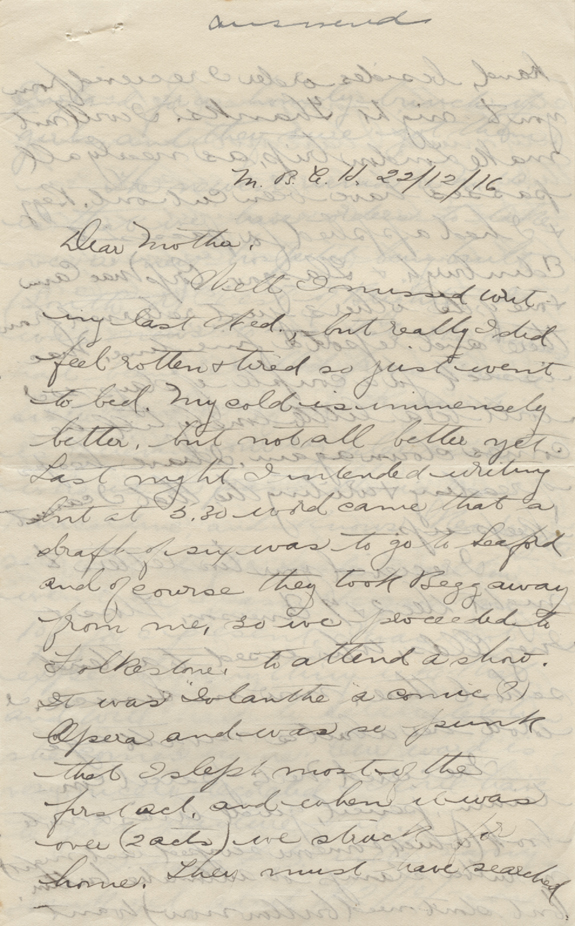 answered
M. B. C. H. 22/12/16
Dear Mother.
Well I missed writ
ing last Wed., but really I did
feel rotten & tired so just went
to bed. My cold is immensely
better, but not all better yet.
Last night I intended writing
but at 5.30 word came that a
draft of six was to go to Seaford
and of course they took Begg away
from me, so we proceeded to
Folkestone, to attend a show.
It was "Iolanthe" a comic (?)
Opera and was so punk
that I slept most of the
first act, and when it was
over (2 acts) we struck for
home. They must have searched